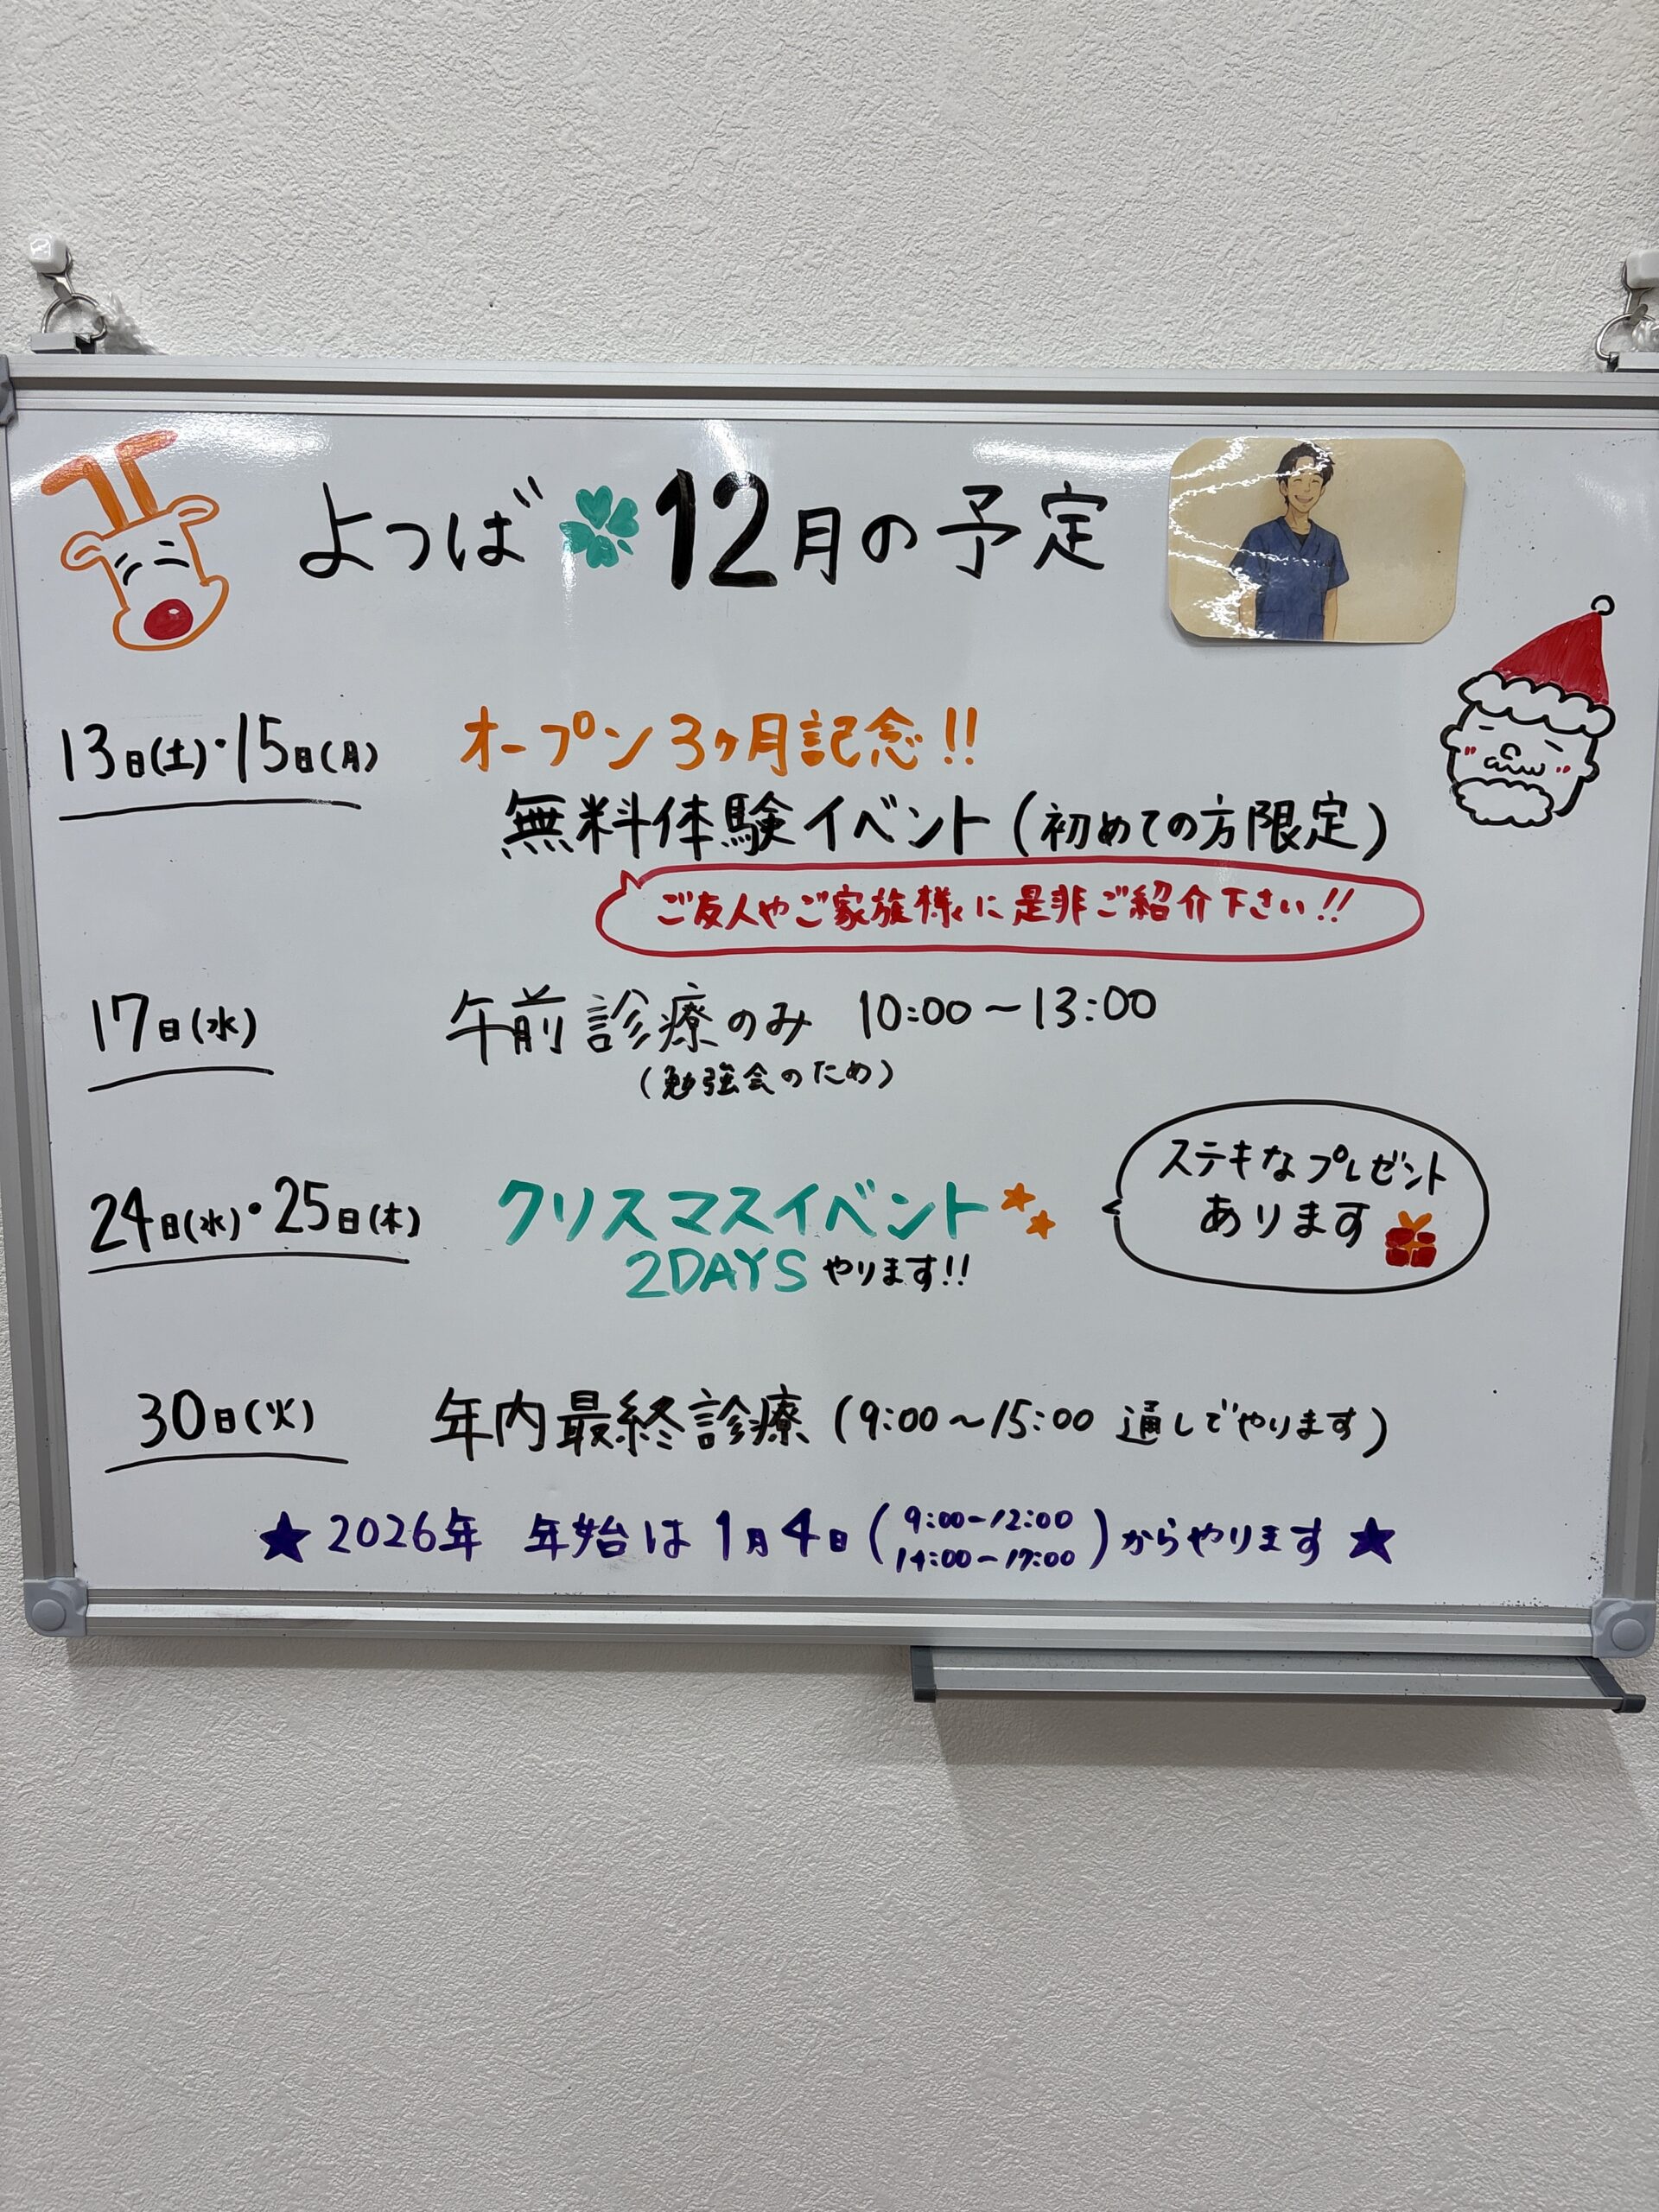 よつば 12月の予定
13日(土)・15日(月) オープン3ヶ月記念!!
無料体験イベント(初めての方限定)
ご友人やご家族様に是非ご紹介下さい!!
17日(水) 午前診療のみ 10:00〜13:00
(勉強会のため)
24日(水)・25日(木) クリスマスイベント
2DAYS やります!!
ステキなプレゼント
あります
30日(火) 年内最終診療(9:00〜15:00 通しでやります)
★2026年 年始は1月4日(9:00〜12:00
14:00〜17:00)からやります★